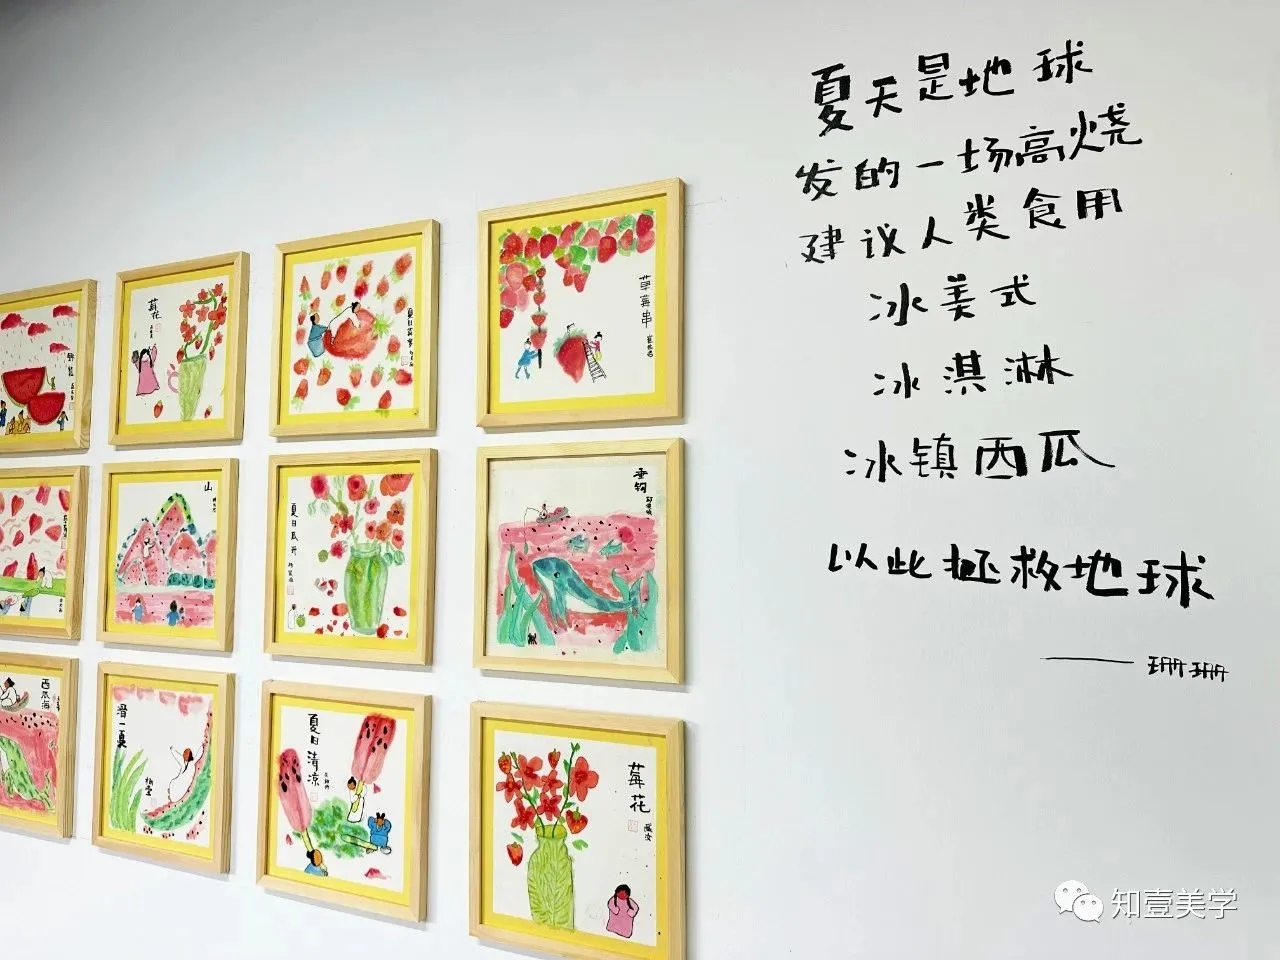 夏天是地球
发的一场高烧
建议人类食用
冰美式
冰淇淋
冰镇西瓜
以此拯救地球
——珊珊
莓花
草莓串
山
夏日瓜开
垂钩
西瓜海
滑一夏
夏日清凉
莓花
知壹美学